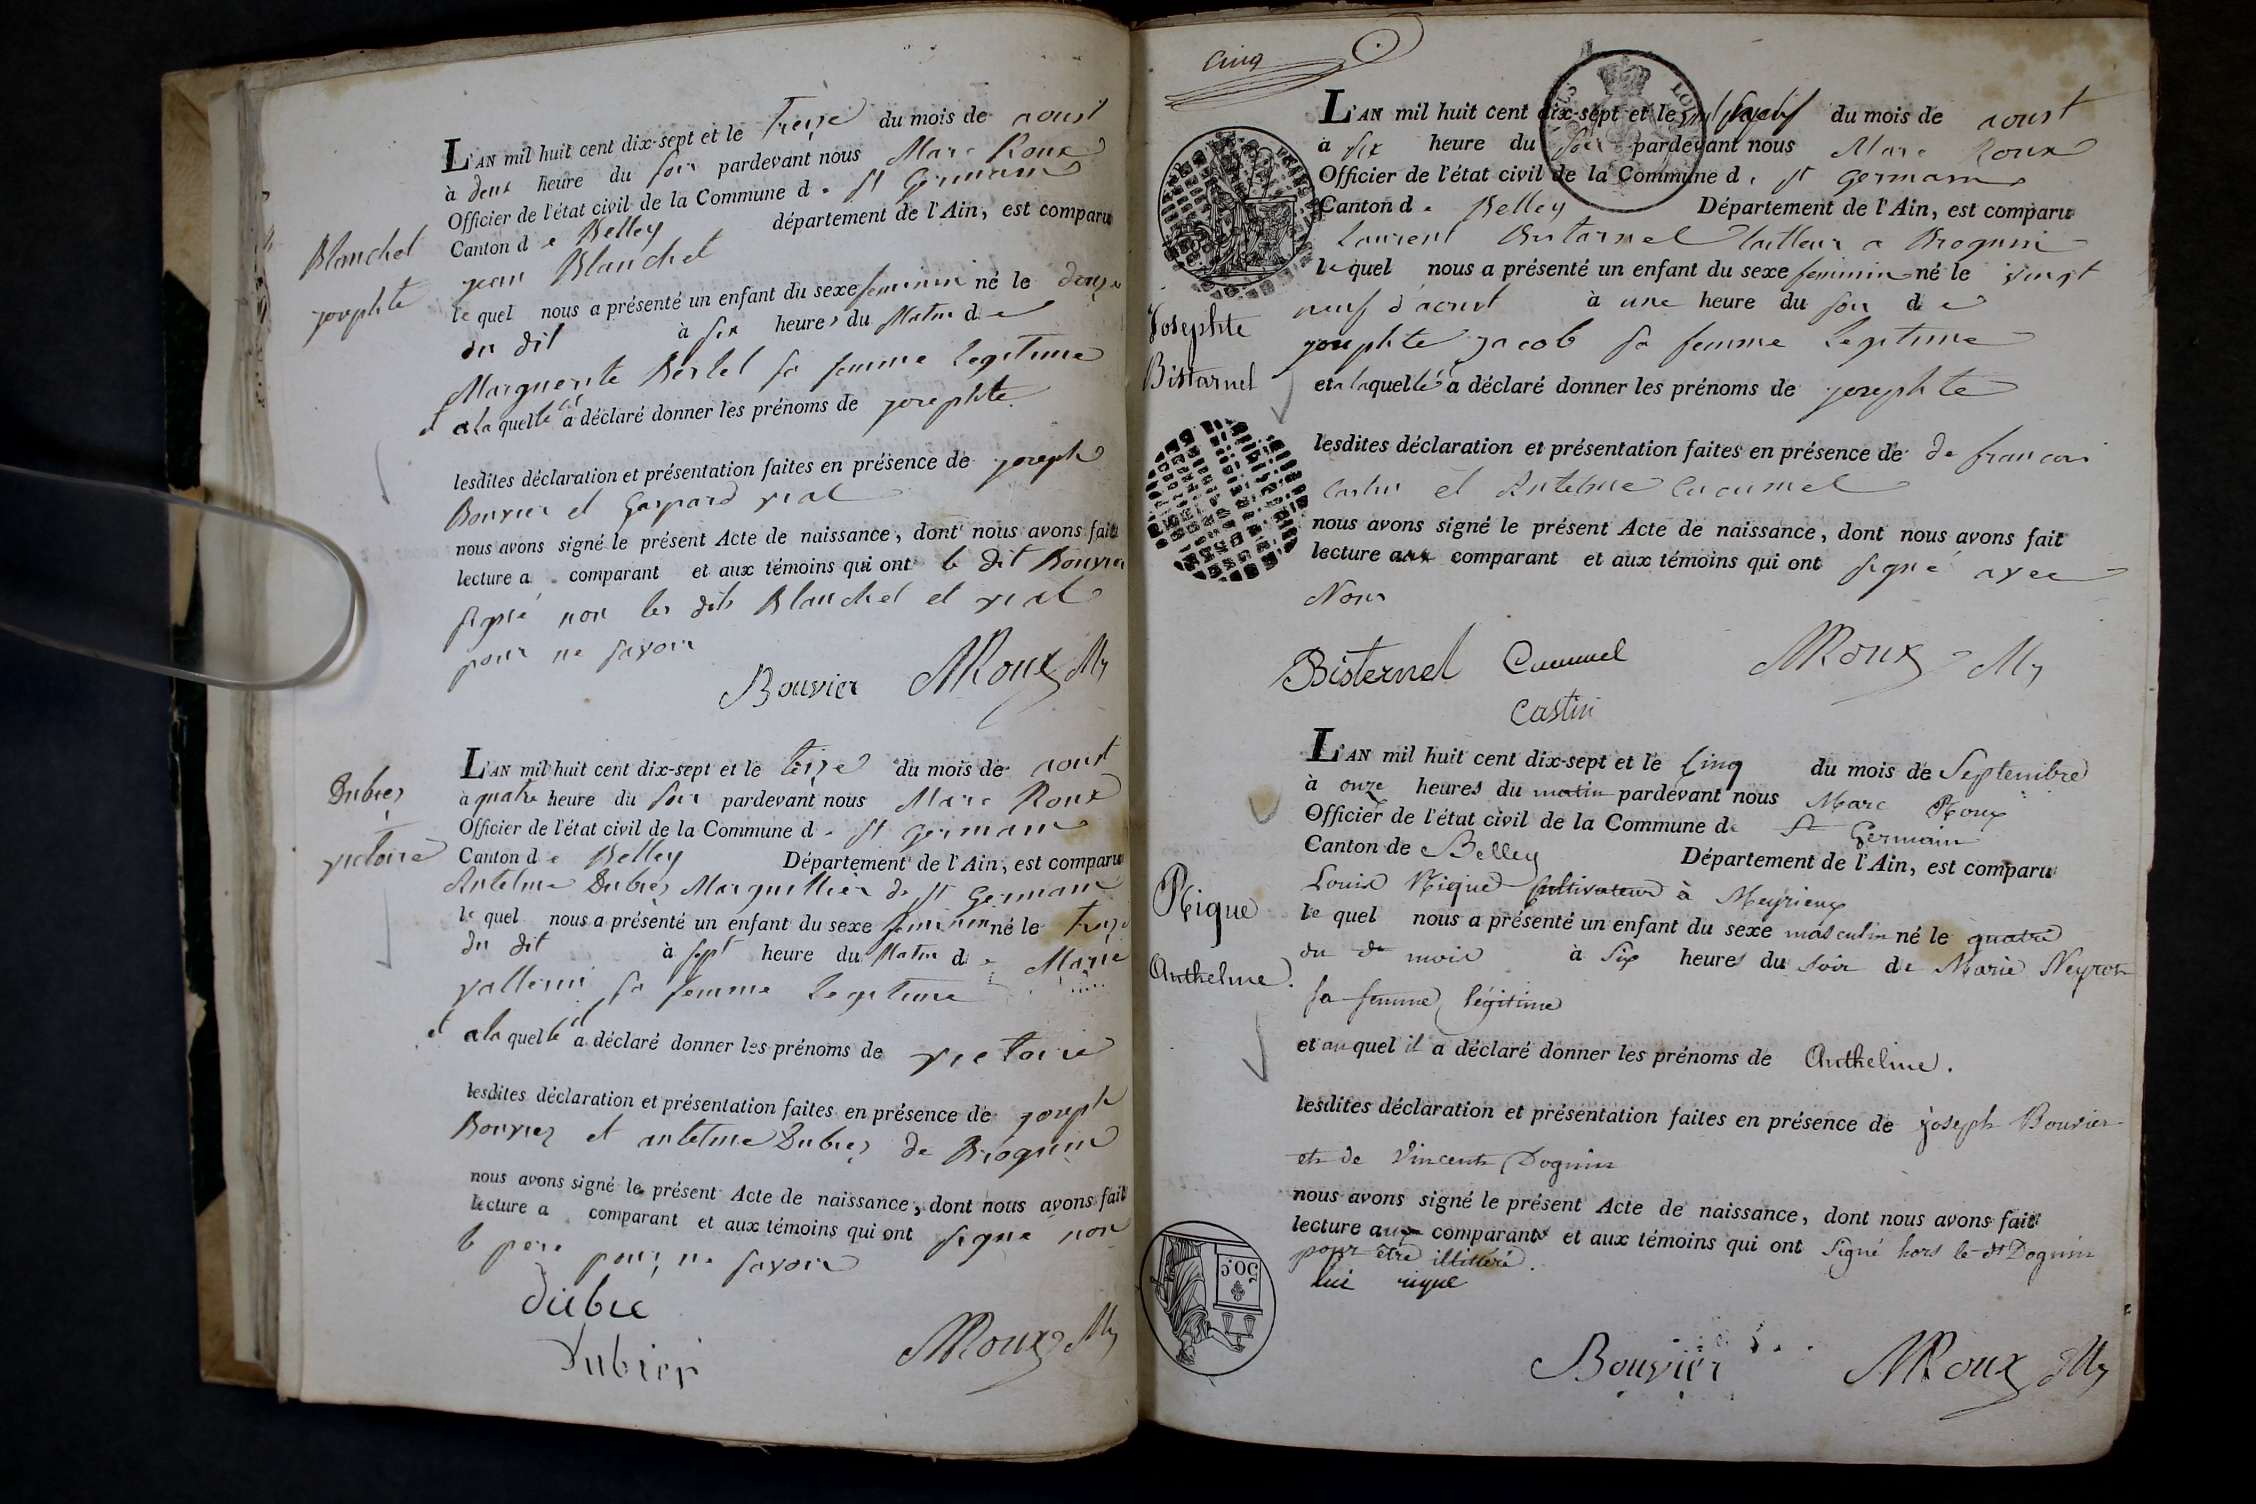 Blanchet
josephte
L'AN mil huit cent dix-sept et le treize du mois de aoust
à deux heure du soir pardevant nous Marc Roux
Officier de l'état civil de la Commune de St Germain
Canton de Belley département de l'Ain, est comparu
jean Blanchet
lequel nous a présenté un enfant du sexe feminin né le douze
du dit à six heures du Matin de
Marguerite Bertet sa femme legitime
et a laquelle il a déclaré donner les prénoms de josephte
lesdites déclaration et présentation faites en présence de joseph
Bouvier et Gaspard vial
nous avons signé le présent Acte de naissance, dont nous avons fait
lecture a comparant et aux témoins qui ont le dit Bouvier
signé non les dits Blanchet et vial
pour ne savoir
Bouvier MRoux My
Dubier
victoire
L'AN mil huit cent dix-sept et le treize du mois de aoust
à quatre heure du soir pardevant nous Marc Roux
Officier de l'état civil de la Commune de St germain
Canton de Belley Département de l'Ain, est comparu
Antelme Dubier Marguillier de St Germain
lequel nous a présenté un enfant du sexe feminin né le treize
du dit à sept heure du Matin de Marie
vallerin sa femme legitime
et a laquelle il a déclaré donner les prénoms de victoire
lesdites déclaration et présentation faites en présence de joseph
Bouvier et antelme Dubier de Brognin
nous avons signé le présent Acte de naissance, dont nous avons fait
lecture a comparant et aux témoins qui ont signé non
le pere pour ne savoir
dubie
Dubier MRoux My
Cinq
Josephte
Bistarnel
L'AN mil huit cent dix-sept et le du mois de aoust
à six heure du soir pardevant nous Marc Roux
Officier de l'état civil de la Commune de St germain
Canton de Belley Département de l'Ain, est comparu
Laurent Bistarnel tailleur a Brognin
lequel nous a présenté un enfant du sexe feminin né le vingt
neuf d'aoust à une heure du soir de
josephte jacob sa femme legitime
et a laquelle il a déclaré donner les prénoms de josephte
lesdites déclaration et présentation faites en présence de de francois
Castin et Antelme Cucumel
nous avons signé le présent Acte de naissance, dont nous avons fait
lecture aux comparant et aux témoins qui ont signé avec
Nous
Bisternel Cucumel MRoux My
Castin
Rique
Anthelme.
L'AN mil huit cent dix-sept et le cinq du mois de Septembre
à onze heures du matin pardevant nous Marc Roux
Officier de l'état civil de la Commune de St Germain
Canton de Belley Département de l'Ain, est comparu
Louis Rique cultivateur à Meyrieux
lequel nous a présenté un enfant du sexe masculin né le quatre
du dt mois à six heures du soir de Marie Neyron
sa femme légitime
et auquel il a déclaré donner les prénoms de Anthelme.
lesdites déclaration et présentation faites en présence de joseph Bouvier
et de Vincent Dognin
nous avons signé le présent Acte de naissance, dont nous avons fait
lecture aux comparants et aux témoins qui ont signé hors le dt Dognin
pour être illitéré.
lui rique
50.c
Bouvier MRoux My